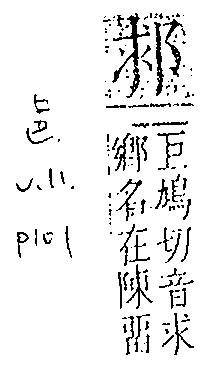 巨鳩切音求
鄉名在陳畱
邑
v.11.
P101